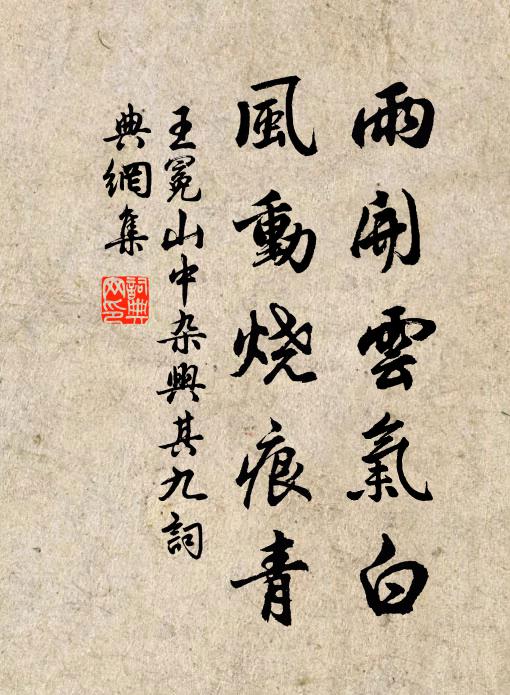 雨開雲氣白
風動烧痕青
王冕山中杂興其九詞
典網集
詞典网印